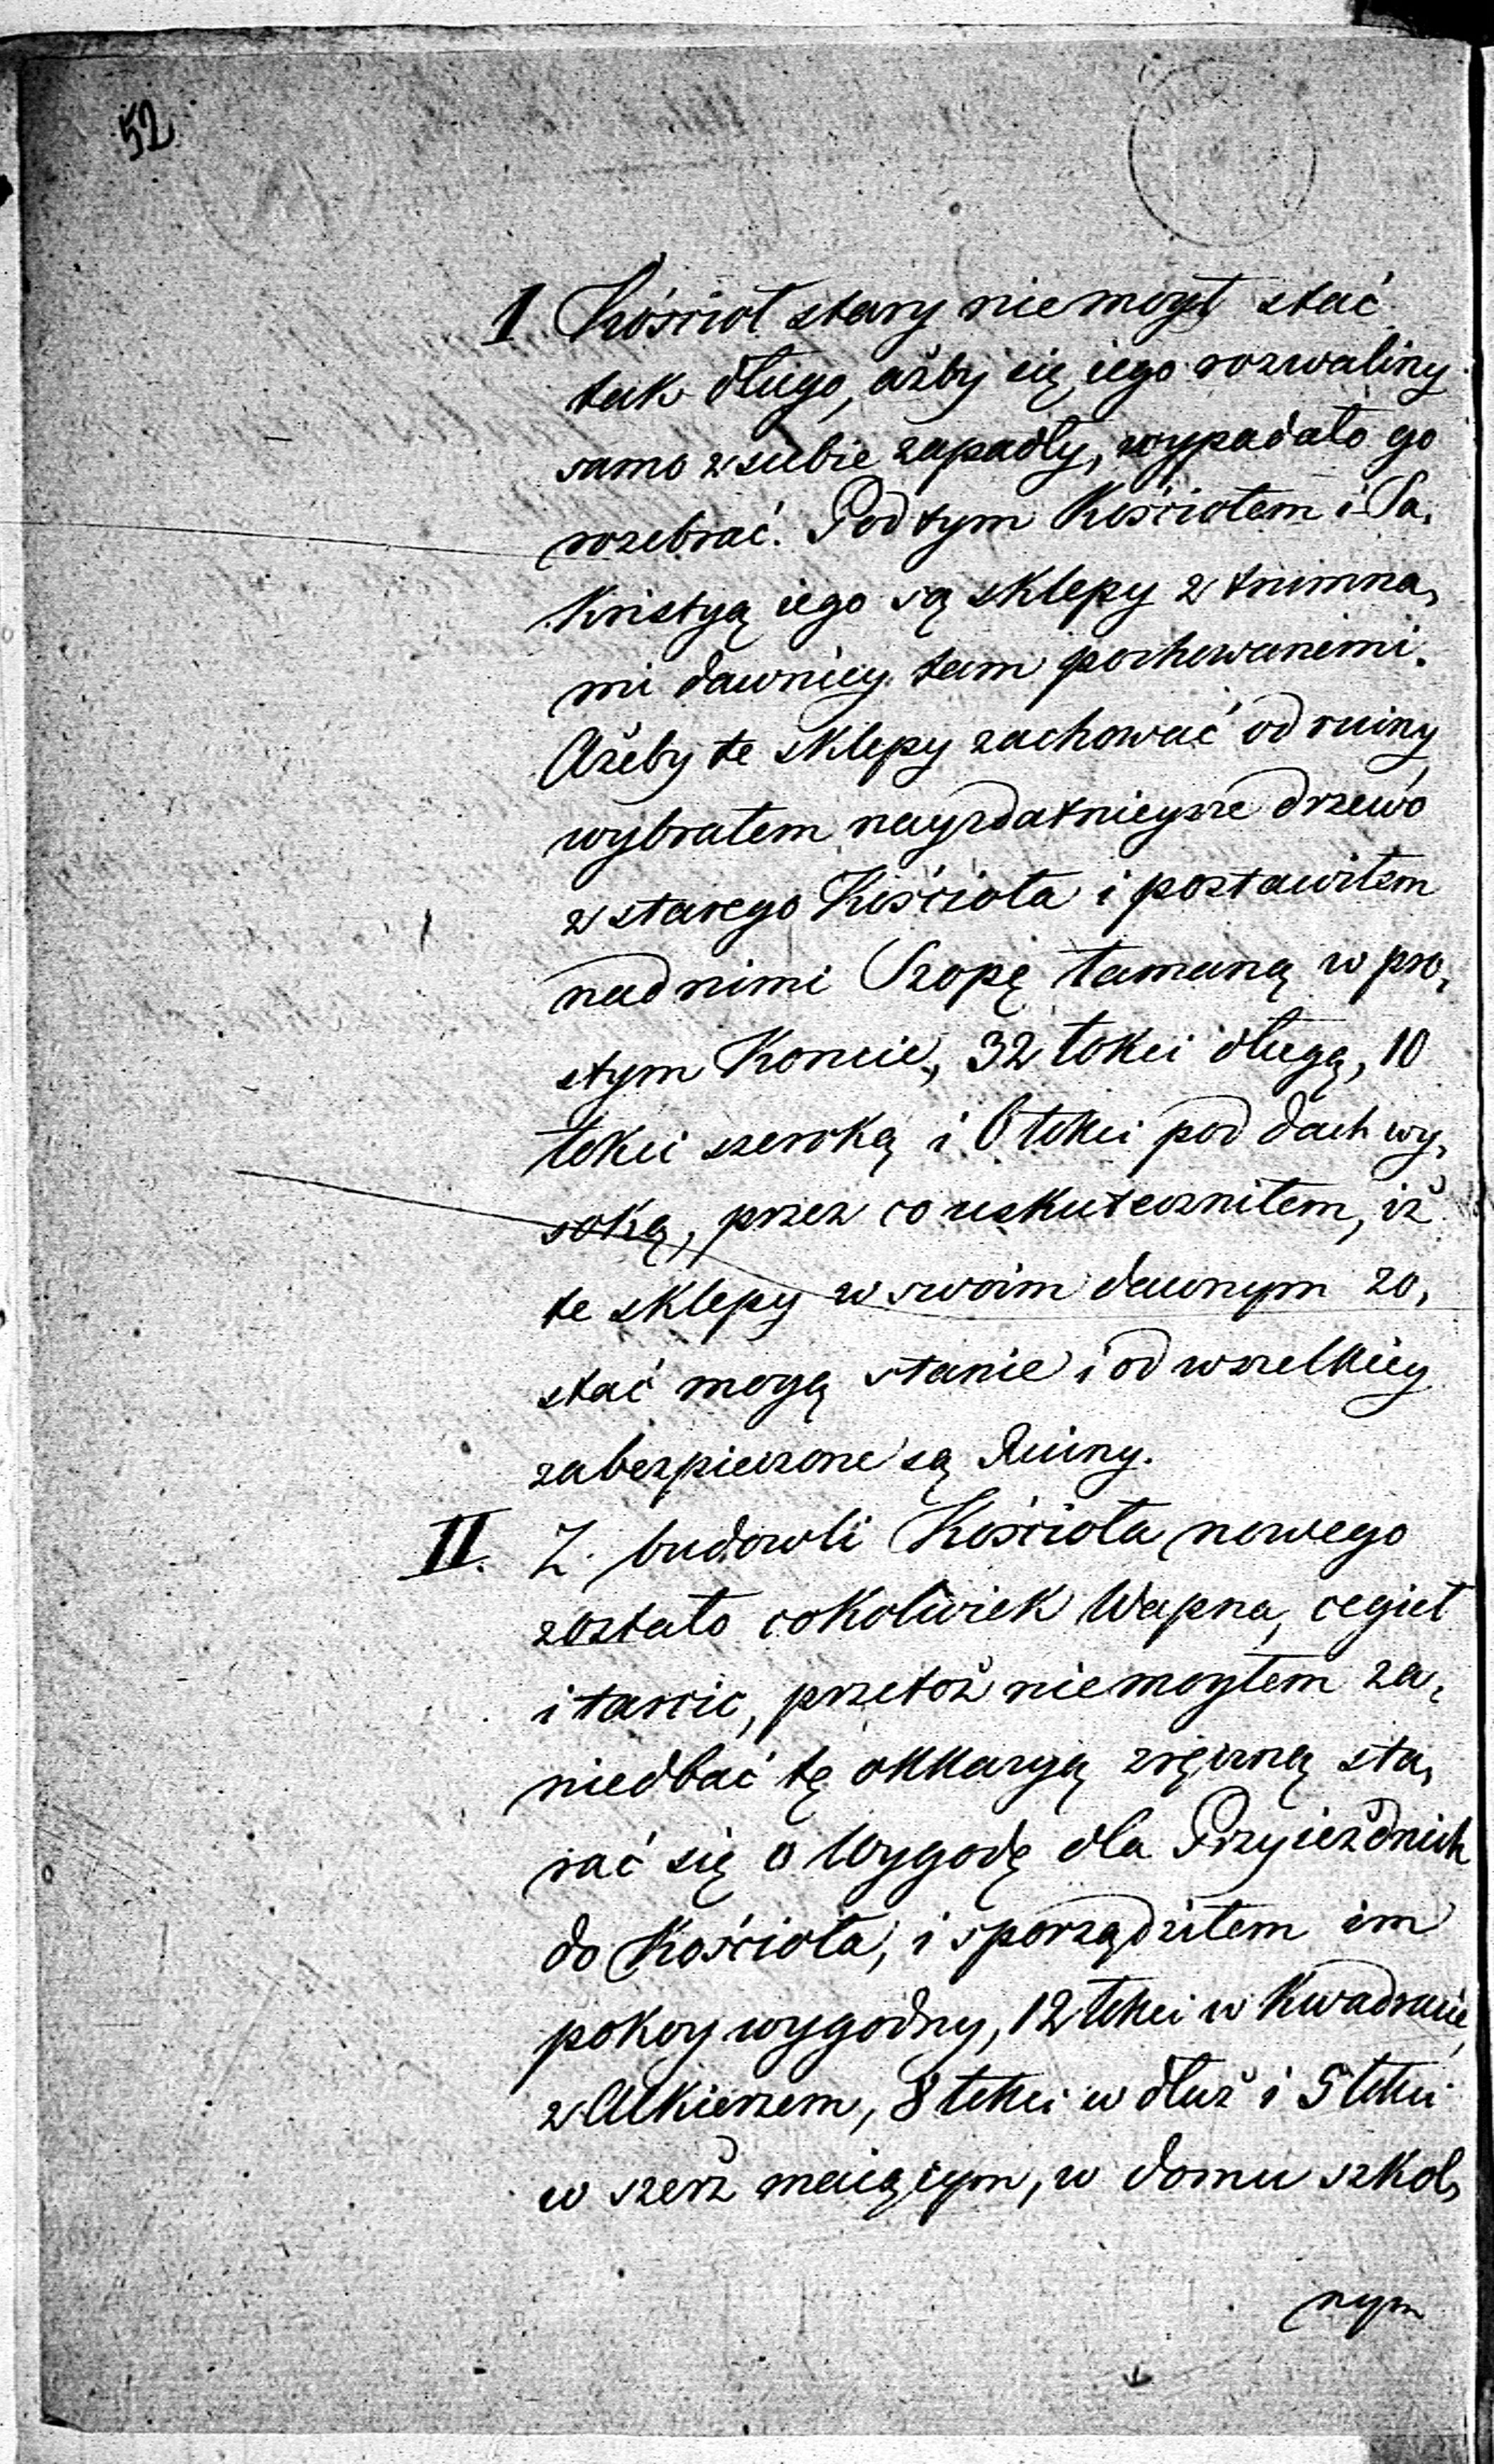 52
I Kościoł stary niemogł stać
tak długo, ażby się iego rozwaliny
samo w sobie zapadły, wypadało go
rozebrać. Pod tym Kościołem i Sa,
Kristyą iego są sklepy z trumna,
mi dawniey tam pochowanemi.
Ażeby te sklepy zachować od ruiny
wybrałem nayzdatnieysze drzewo
z starego Kościoła i postawiłem
nad nimi Szopę łamaną w pro,
stym Koncie, 32 łokci długą, 10
łokci szeroką i 6 łokci pod dach wy,
soką, przez co uskuteczniłem, iż
te sklepy w swoim dawnym zo,
stać mogą stanie i od wszelkiey
zabezpieczone są Ruiny.
II. Z budowli Kościoła nowego
zostało cokolwiek Wapna, cegieł
i tarcic, przetoż niemogłem za,
niedbać tę okkazyą zręczną sta,
rać się o Wygodę dla Przyieżdnich
do Kościoła, i sporządziłem im
pokoy wygodny, 12 łokci w Kwadracie,
z Alkierzem, 8 łokci w dłuż i 5 łokci
w szerz maiącym, w domu szkol,
nym